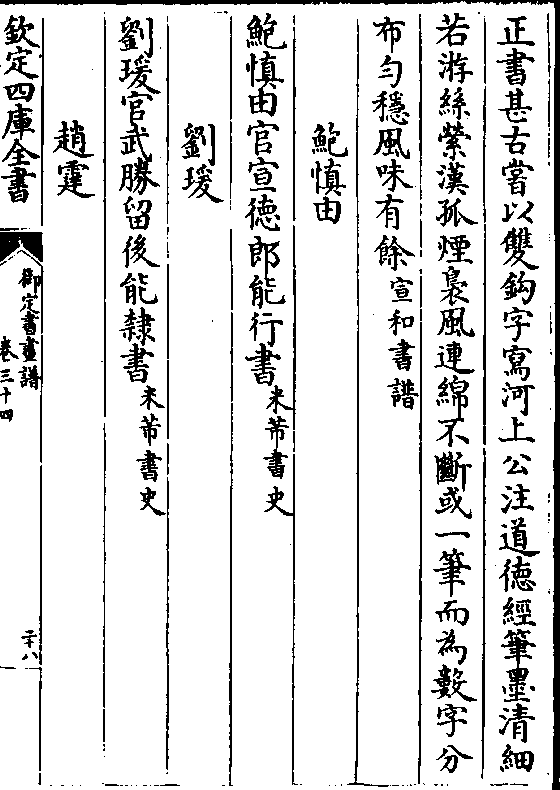 正書甚古嘗以雙鈎字寫河上公注道德經筆墨清細
若游絲縈漢孤煙裊風連綿不斷或一筆而為數字分
布勻穩風味有餘宣和書譜
鮑慎由
鮑慎由官宣德郎能行書米芾書史
劉瑗
劉瑗官武勝留後能隸書米芾書史
趙霆
欽定四庫全書
御定書畫譜
卷三十四
二十八